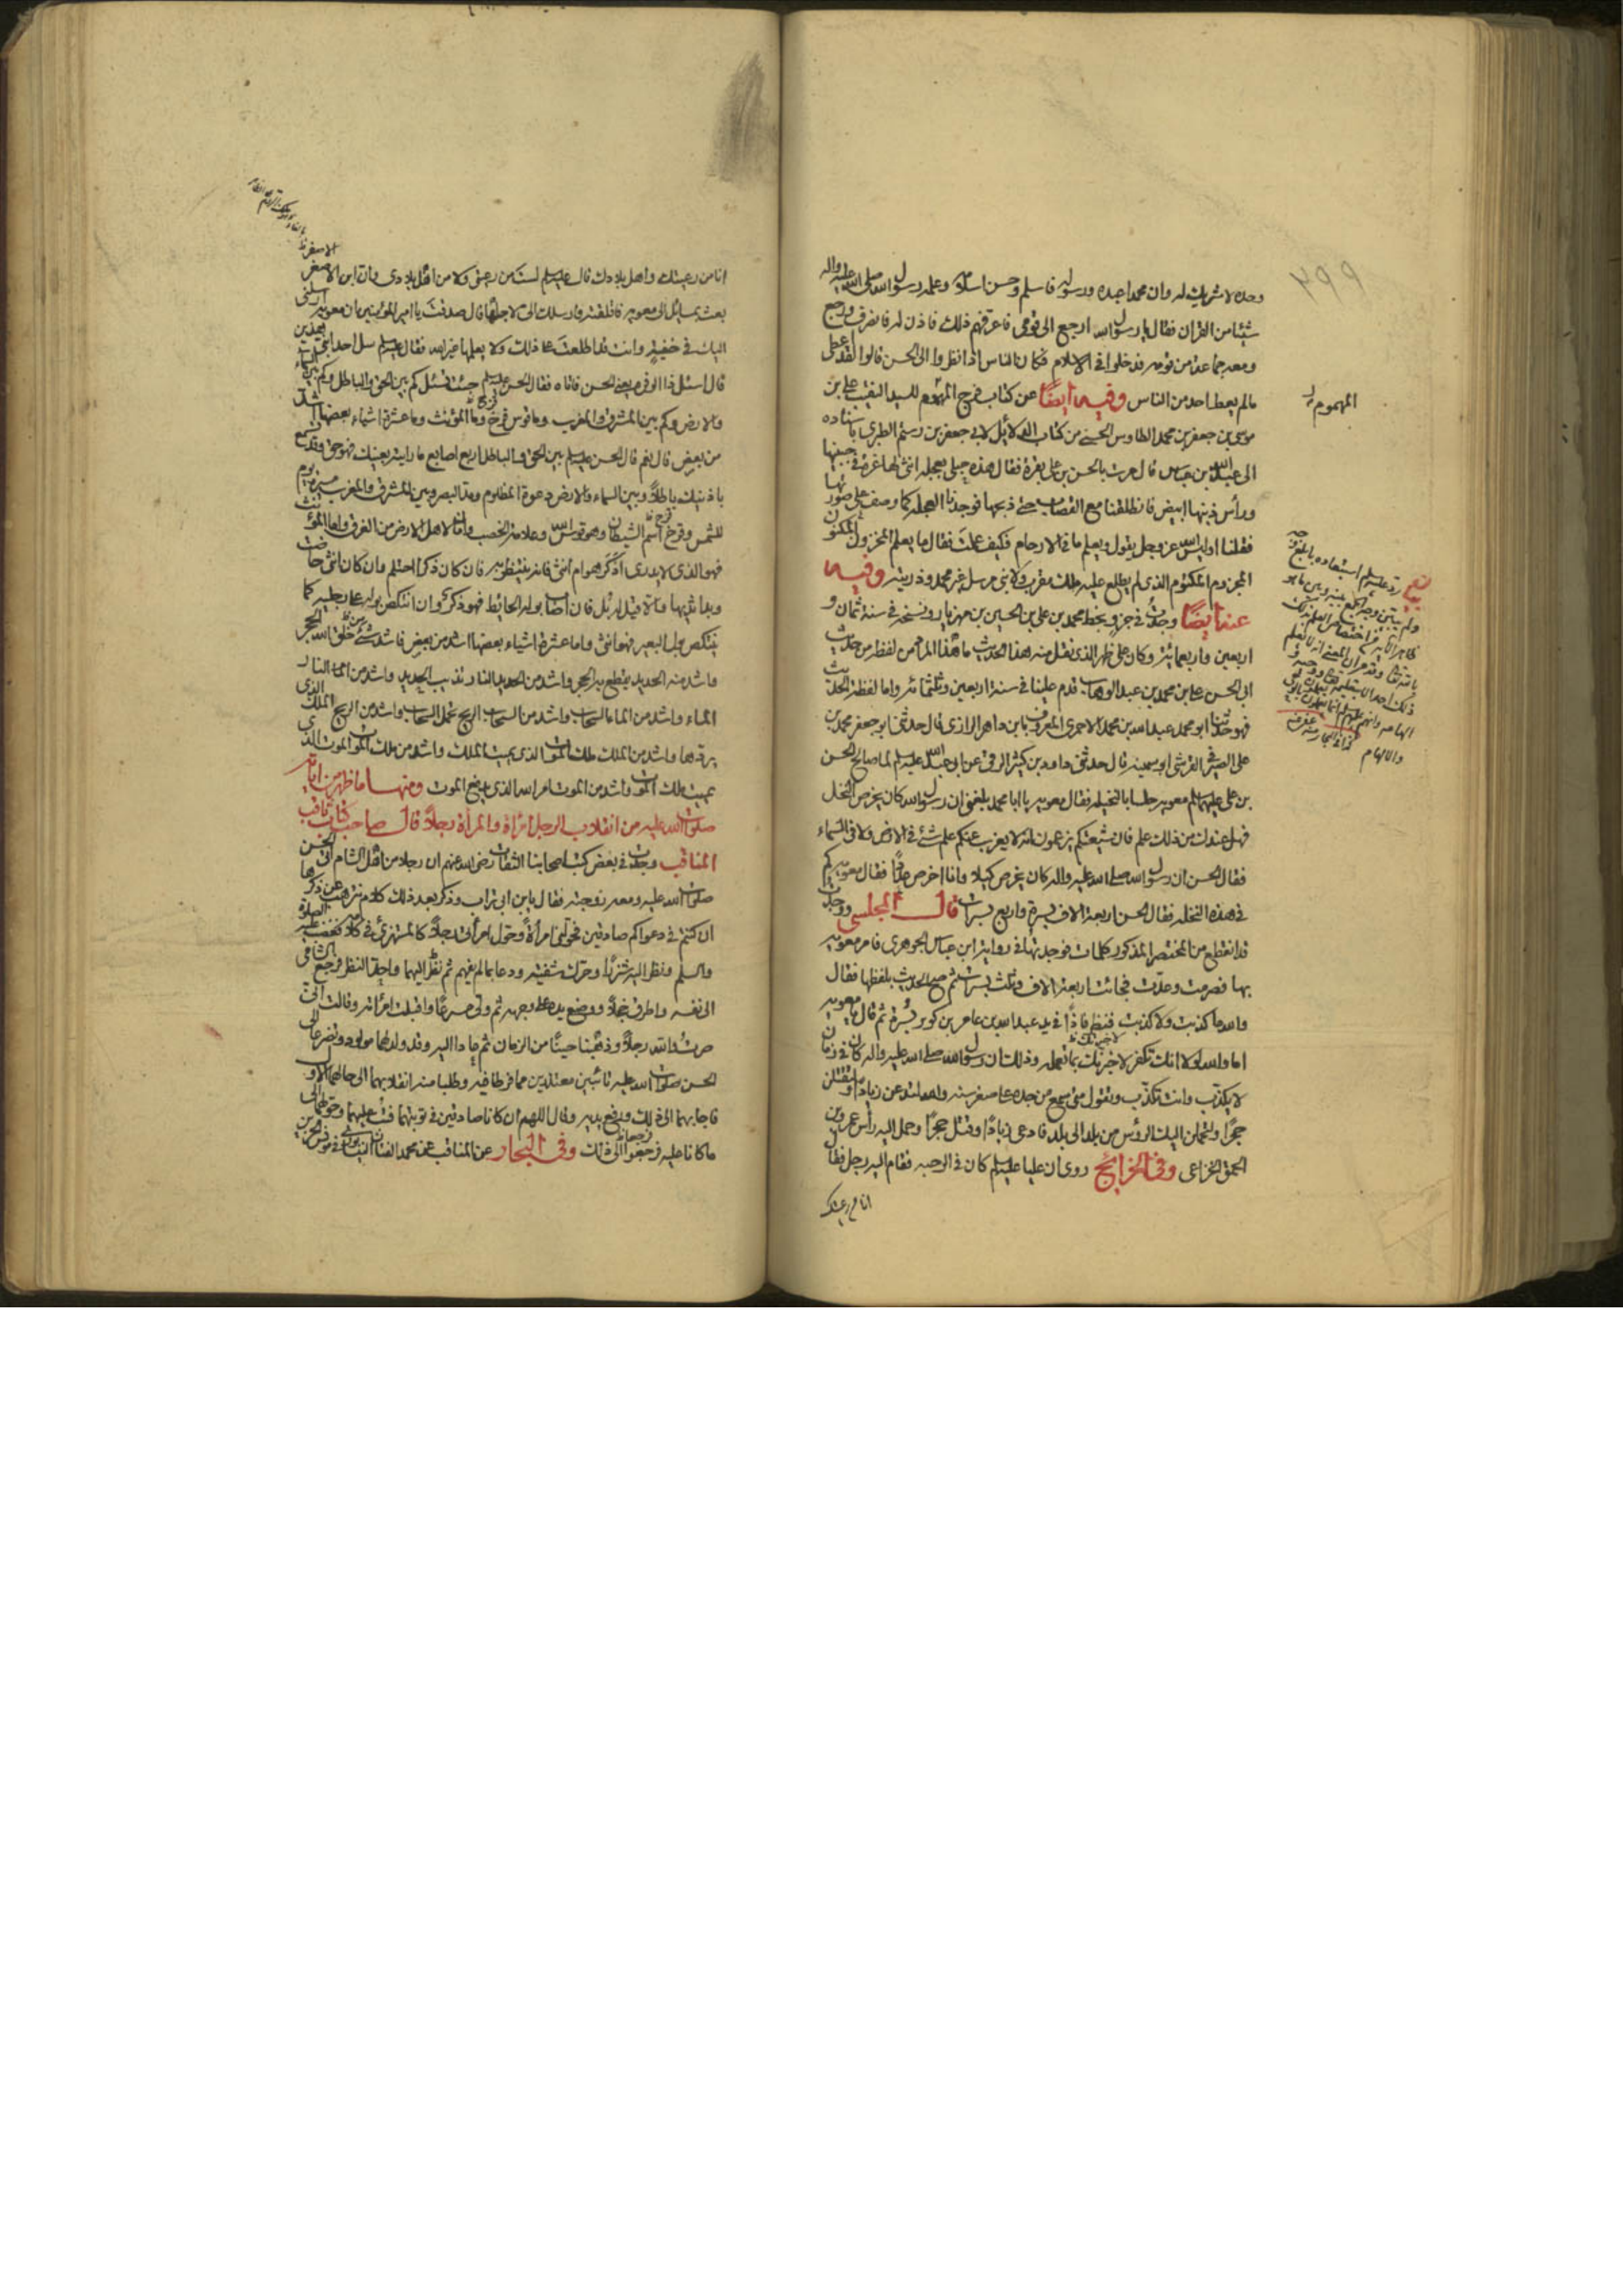 وحده لا شريك له وان محمدا عبده ورسوله فاسلم وحسن اسلامه وعلمه رسول الله صلى الله عليه واله
شيئا من القران فقال يا رسول الله ارجع الى قومى فاعرفهم ذلك فاذن له فانصرف ورجع
ومعه جماعة من قومه فدخلوا فى الاسلام فكان الناس اذا نظروا الى الحسن قالوا لقد اعطى
مالم يعط احد من الناس وفيه ايضا عن كتاب فرج المهموم للسيد النقيب على بن
موسى بن جعفر بن محمد الطاوس الحسنى من كتاب الدلائل لابى جعفر بن رستم الطبرى باسناده
الى عبد الله بن عباس قال مرت بالحسن بن على بقرة فقال هذه حبلى بعجلة انثى لها غرة فى جبينها
ورأس ذنبها ابيض فانطلقنا مع القصاب حتى ذبحها فوجدنا العجلة كما وصف على صورتها
فقلنا اوليس الله عز وجل يقول ويعلم ما فى الارحام فكيف علمت فقال ما يعلم المخزون المكنون
المجزوم المكتوم الذى لم يطلع عليه ملك مقرب ولا نبى مرسل غير محمد وذريته وفيه
عنه ايضا وجدت فى جزء بخط محمد بن على بن الحسين بن مهزيار ونسخه فى سنة ثمان و
اربعين واربعمائة وكان على ظهر الذى نقل منه هذا الحديث ما هذا المراد من لفظ من حديث
ابى الحسن على بن محمد بن عبد الوهاب قدم علينا فى سنة اربعين وثلثمائة واما لفظة الحديث
فهو حدثنا ابو محمد عبد الله بن محمد الاحمرى المعروف بابن داهر الرازى قال حدثنى ابو جعفر محمد بن
على الصيرفى القرشى ابو سمينة قال حدثنى داود بن كثير الرقى عن ابى عبد الله عليه السلم لما صالح الحسن
بن على عليهما السلم معوية جلسا بالنخيلة فقال معوية يا ابا محمد بلغنى ان رسول الله كان يخرص النخل
فهل عندك من ذلك علم فان شيعتكم يزعمون انه لا يعزب عنكم علم شئ فى الارض ولا فى السماء
فقال الحسن ان رسول الله صلى الله عليه واله كان يخرص كيلا وانا اخرص عددا فقال معوية كم
فى هذه النخلة فقال الحسن اربعة الاف بسرة واربع بسرات قال المجلسى ووجدت
قد انقطع من المختصر المذكور كلمات فوجدتها فى رواية ابن عباس الجوهرى فامر معوية
بها فصرمت وعدت فجائت اربعة الاف وثلث بسرات ثم صح الحديث بلفظها فقال
والله ما كذبت ولا كذبت فنظر فاذا فى يد عبد الله بن عامر بن كريز بسرة ثم قال يا معوية
اما والله لولا انك تكفر لاخبرتك بما تعمله وذلك ان رسول الله صلى الله عليه واله كان فى زمان
لا يكذب وانت تكذب وتقول متى سمع من جده على صغر سنه والله لتدعن زيادا ولتقتلن
حجرا ولتحملن اليك الرؤس من بلد الى بلد فادعى زيادا وقتل حجرا وحمل اليه رأس عمرو بن
الحمق الخزاعى وفى الخرائج روى ان عليا عليه السلم كان فى الرحبة فقام اليه رجل فقال
انا من رعيتك
المهموم
انا من رعيتك واهل بلادك قال عليه السلم لست من رعيتى ولا من اهل بلادى وان ابن الاصفر
بعث بمسائل الى معوية فاقلقته وارسلك الى لاجلها قال صدقت يا امير المؤمنين ان معوية ارسلنى
اليك فى خفية وانت قد اطلعت على ذلك ولا يعلمها غير الله فقال عليه السلم سل احد ابنى هذين
قال اسئل ذا الوفرة يعنى الحسن فاتاه فقال الحسن عليه السلم جئت تسئل كم بين الحق والباطل وكم بين السماء
والارض وكم بين المشرق والمغرب وما قوس قزح وما المؤنث وما عشرة اشياء بعضها اشد
من بعض قال نعم قال الحسن عليه السلم بين الحق والباطل اربع اصابع ما رايته بعينك فهو حق وقد تسمع
باذنيك باطلا وبين السماء والارض دعوة المظلوم ومد البصر وبين المشرق والمغرب مسيرة يوم
للشمس وقزح اسم الشيطان وهو قوس الله وعلامة الخصب وامان لاهل الارض من الغرق واما المؤنث
فهو الذى لا يدرى اذكر هو ام انثى فانه ينتظر به فان كان ذكرا احتلم وان كان انثى حاضت
وبدا ثديها والا قيل له بل فان اصاب بوله الحائط فهو ذكر وان انتكص بوله على رجليه كما
ينتكص بول البعير فهو انثى واما عشرة اشياء بعضها اشد من بعض فاشد شئ خلق الله الحجر
واشد منه الحديد يقطع به الحجر واشد من الحديد النار تذيب الحديد واشد من النار
الماء واشد من الماء السحاب واشد من السحاب الريح تحمل السحاب واشد من الريح الملك الذى
يردها واشد من الملك ملك الموت الذى يميت الملك واشد من ملك الموت الموت الذى
يميت ملك الموت واشد من الموت امر الله الذى يدفع الموت ومنها ما ظهر من اياته
صلوات الله عليه من انقلاب الرجل امراة والمراة رجلا قال صاحب كتاب ثاقب
المناقب وجدت فى بعض كتب اصحابنا الثقات رضى الله عنهم ان رجلا من اهل الشام اتى الحسن
صلوات الله عليه ومعه زوجته فقال يا بن ابى تراب وذكر بعد ذلك كلاما نزهت عن ذكرها
ان كنتم فى دعواكم صادقين فحولنى امرأة وحول امرأتى رجلا كالمستهزئ فى كلامه فغضب عليه الصلوة
والسلم ونظر اليه شزرا وحرك شفتيه ودعا بما لم يفهم ثم نظر اليهما واحد النظر فرجع الشامى
الى نفسه واطرق خجلا ووضع يده على وجهه ثم ولى مسرعا واقبلت امرأته وقالت انى
صرت والله رجلا وذهبا حينا من الزمان ثم عادا اليه وقد ولد لهما مولود وتضرعا الى
الحسن صلوات الله عليه تائبين معتذرين مما فرطا فيه وطلبا منه انقلابهما الى حالهما الاولى
فاجابهما الى ذلك ورفع يديه وقال اللهم ان كانا صادقين فى توبتهما فتب عليهما وحولهما الى
ما كانا عليه فرجعا الى ذلك وفى البحار عن المناقب عن محمد الفتال النيسابورى فى مونس الحزين